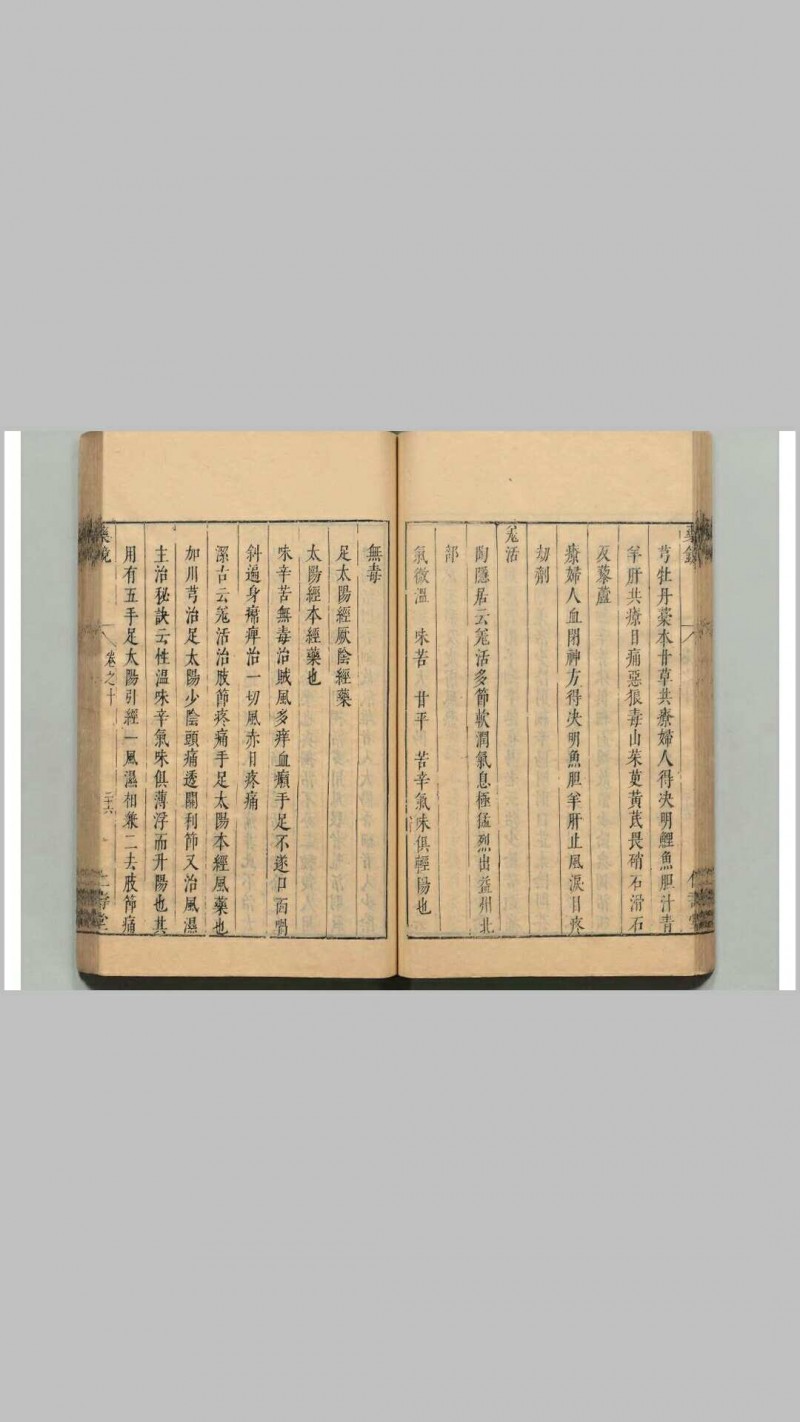 芎牡丹藁本甘草共療婦人得决明鯉魚胆汁青
羊肝共療目痛惡狼毒山茱萸黃芪畏硝石滑石
反藜蘆
療婦人血閉神方得决明魚胆羊肝止風淚目疼
刼劑
羗活
陶隱居云羗活多節軟潤氣息極猛烈出益州北
部
氣微溫 味苦 甘平 苦辛氣味俱輕陽也
無毒
足太陽經厥陰經藥
太陽經本經藥也
味辛苦無毒治賊風多痒血癩手足不遂口面喎
斜遍身㾪痺治一切風赤目疼痛
潔古云羗活治肢節疼痛手足太陽本經風藥也
加川芎治足太陽少陰頭痛透關利節又治風濕
主治秘訣云性溫味辛氣味俱薄浮而升陽也其
用有五手足太陽引經一風濕相兼二去肢節痛
卷之十
二十六